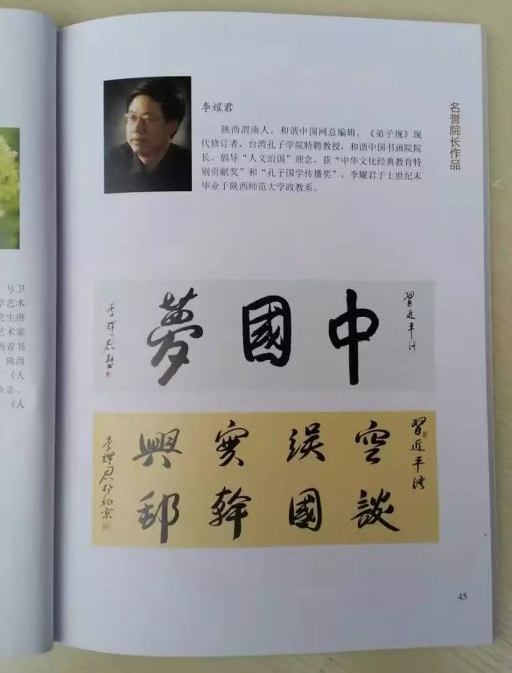 名誉院长作品
李耀君
陕西渭南人，和谐中国网总编辑，《弟子规》现
代修订者，台湾孔子学院特聘教授，和谐中国书画院院
长。倡导“人文治国”理念，获“中华文化经典教育特
别贡献奖”和“孔子国学传播奖”，李耀君于上世纪末
毕业于陕西师范大学政教系。
習近平語
中國夢
習近平語
空談
誤國
實幹
興邦
号卫
学艺术
究生班
艺术家
西省书
陕西
《人
杂志、
《人
45